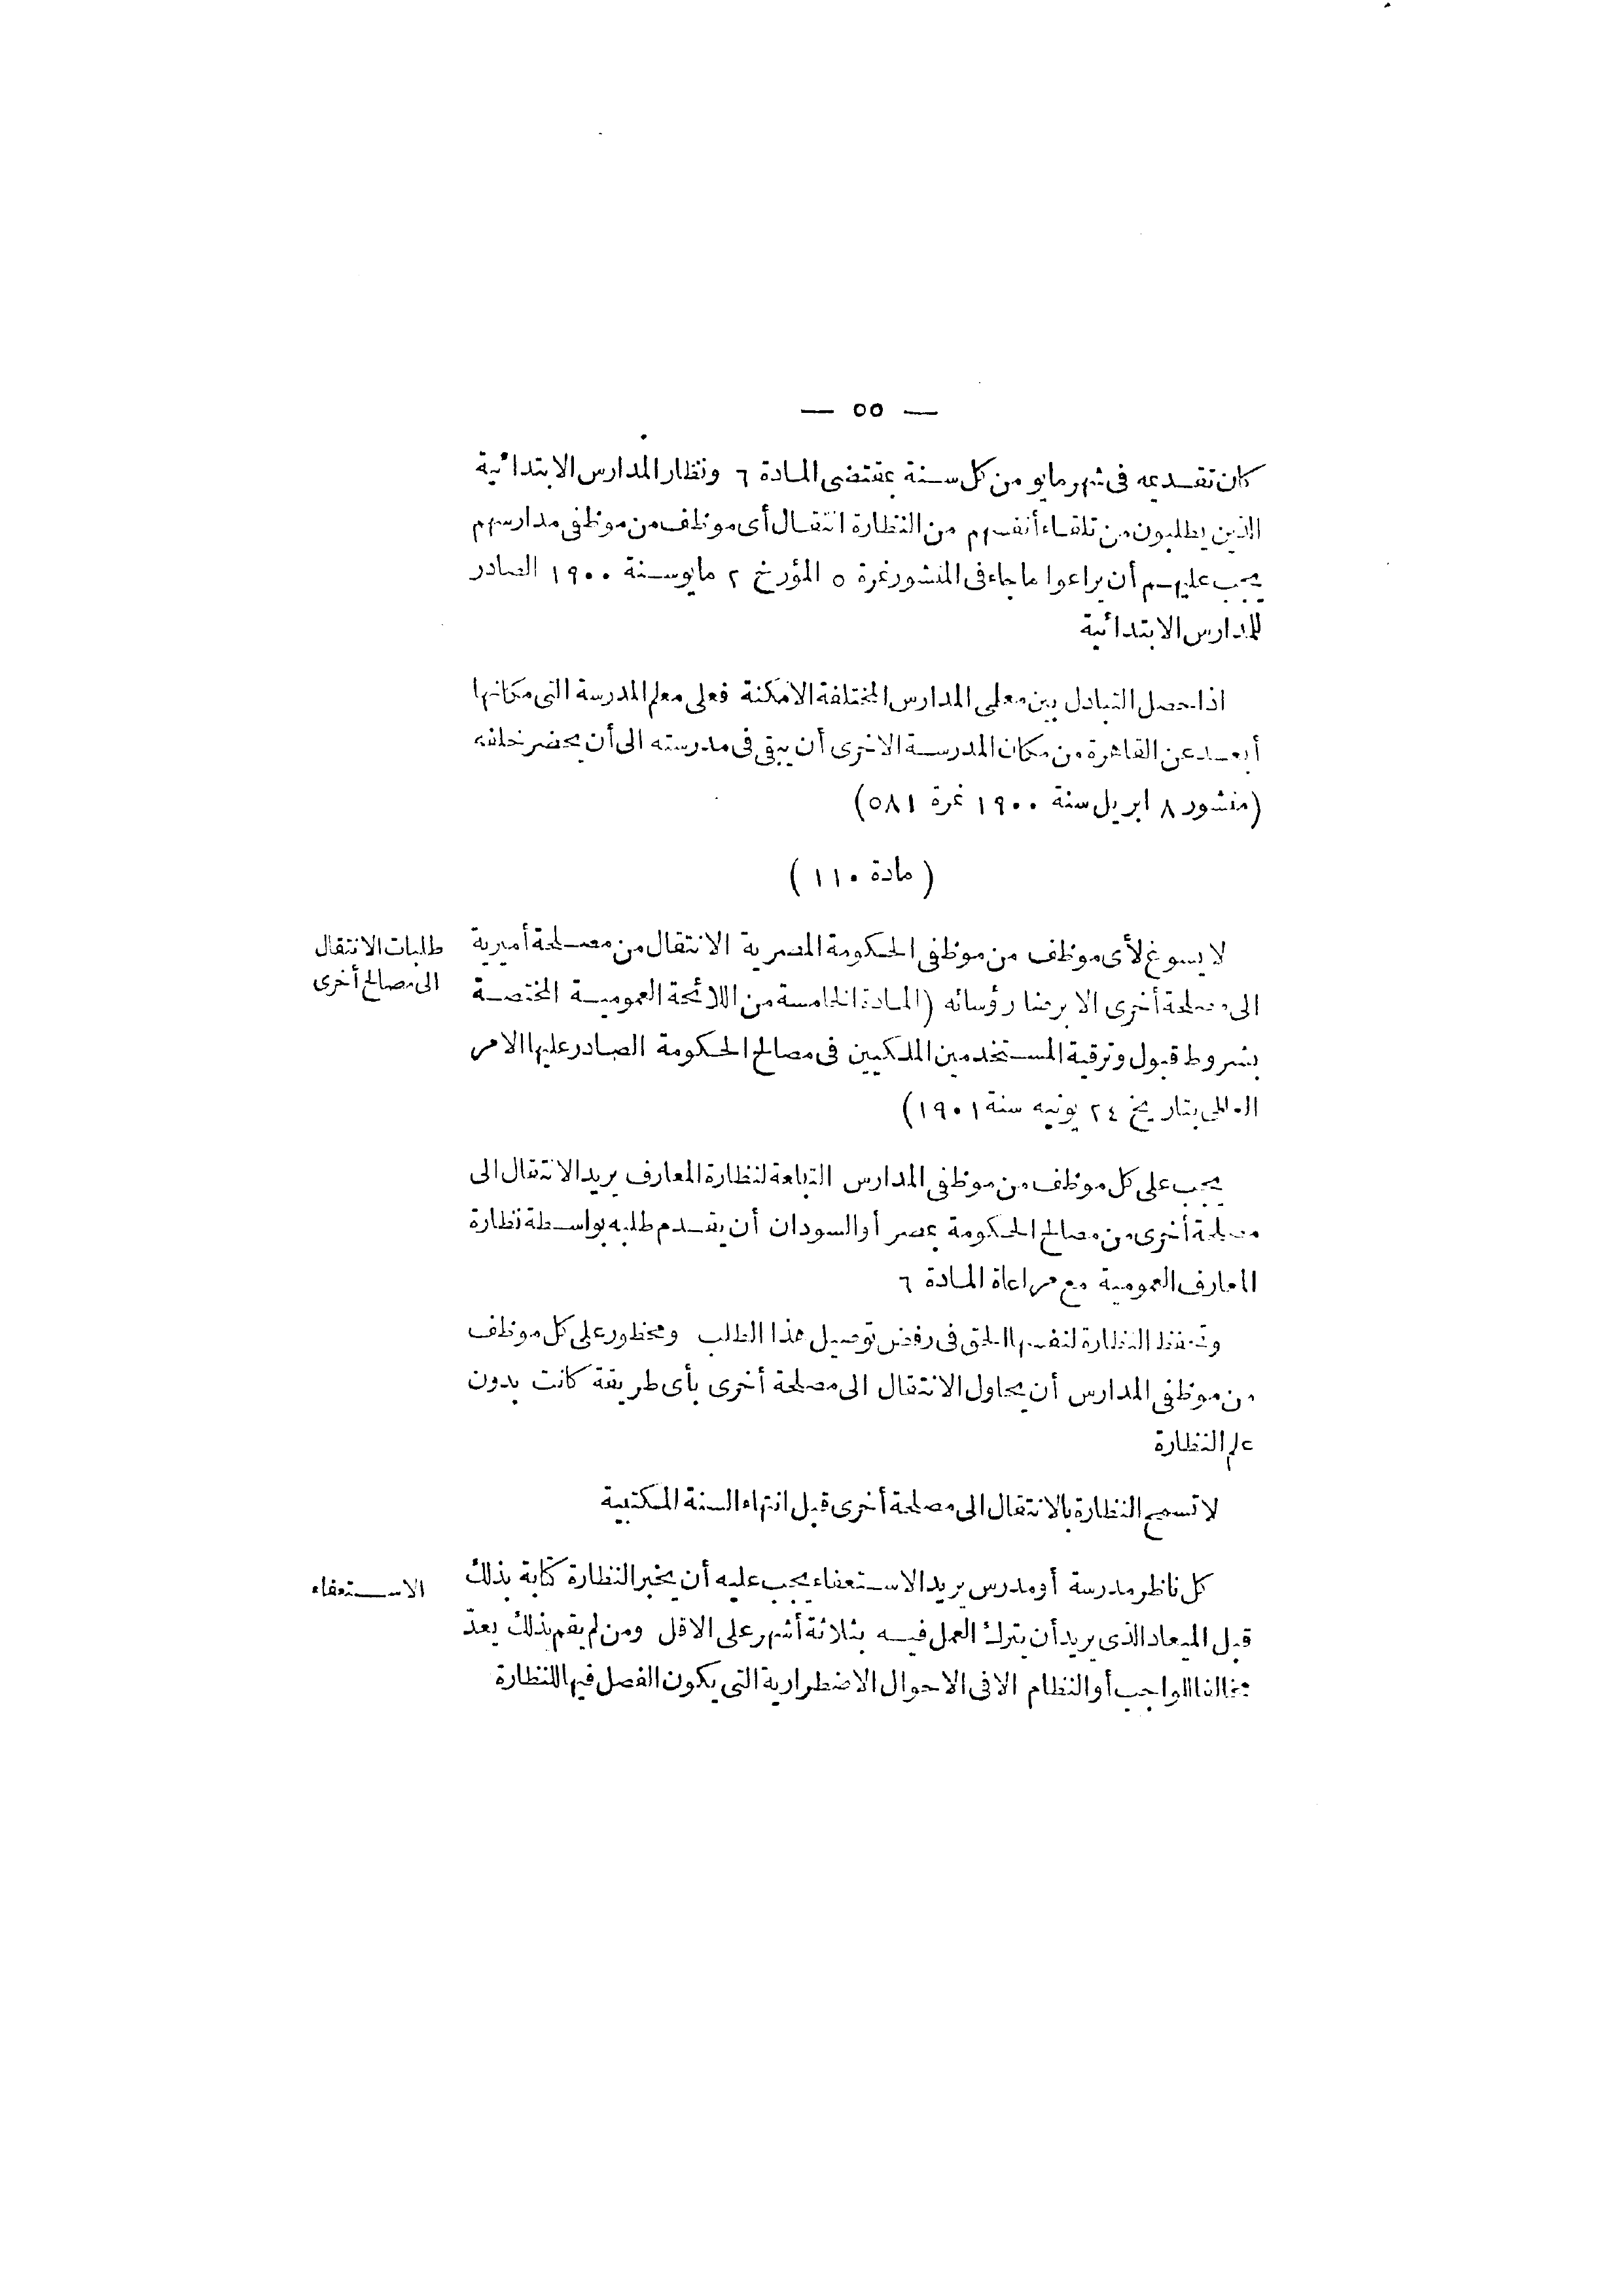 — ٥٥ —
كان تقديمه فى شهر مايو من كل سنة بمقتضى المادة ٦ ونظار المدارس الابتدائية
الذين يطلبون من تلقاء أنفسهم من النظارة انتقال أى موظف من موظفى مدارسهم
يجب عليهم أن يراعوا ما جاء فى المنشور نمرة ٥ المؤرخ ٢ مايو سنة ١٩٠٠ الصادر
للمدارس الابتدائية
اذا حصل التبادل بين معلمى المدارس المختلفة الامكنة فعلى معلم المدرسة التى مكانها
أبعد عن القاهرة من مكان المدرسة الاخرى أن يبقى فى مدرسته الى أن يحضر خلفه
(منشور ٨ ابريل سنة ١٩٠٠ نمرة ٥٨١)
( مادة ١١٠ )
طلبات الانتقال
الى مصالح أخرى
لا يسوغ لأى موظف من موظفى الحكومة المصرية الانتقال من مصلحة أميرية
الى مصلحة أخرى الا برضا رؤسائه (المادة الخامسة من اللائحة العمومية المختصة
بشروط قبول وترقية المستخدمين الملكيين فى مصالح الحكومة الصادر عليها الامر
العالى بتاريخ ٢٤ يونيه سنة ١٩٠١)
يجب على كل موظف من موظفى المدارس التابعة لنظارة المعارف يريد الانتقال الى
مصلحة أخرى من مصالح الحكومة بمصر أو السودان أن يقدم طلبه بواسطة نظارة
المعارف العمومية مع مراعاة المادة ٦
وتحفظ النظارة لنفسها الحق فى رفض توصيل هذا الطلب ومحظور على كل موظف
من موظفى المدارس أن يحاول الانتقال الى مصلحة أخرى بأى طريقة كانت بدون
علم النظارة
لا تسمح النظارة بالانتقال الى مصلحة أخرى قبل انتهاء السنة المكتبية
الاستعفاء
كل ناظر مدرسة أو مدرس يريد الاستعفاء يجب عليه أن يخبر النظارة كتابة بذلك
قبل الميعاد الذى يريد أن يترك العمل فيه بثلاثة أشهر على الاقل ومن لم يقم بذلك يعدّ
مخالفا للواجب أو النظام الا فى الاحوال الاضطرارية التى يكون الفصل فيها للنظارة